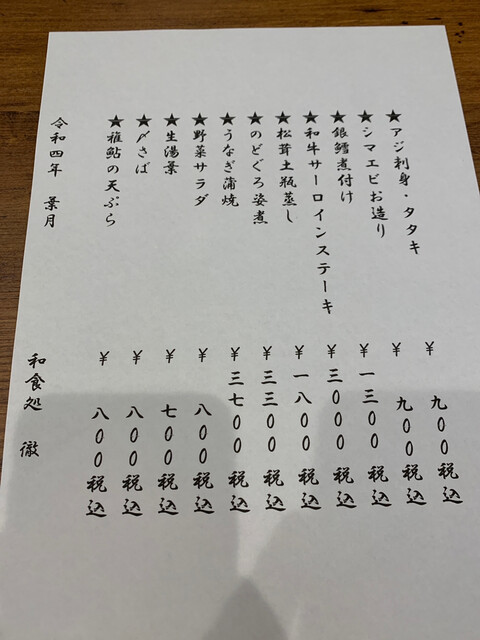 ★アジ刺身・タタキ ¥ 九00税込
★シマエビお造り ¥ 九00税込
★銀鱈煮付け ¥一三00税込
★和牛サーロインステーキ ¥三000税込
★松茸土瓶蒸し ¥一八00税込
★のどぐろ姿煮 ¥三三00税込
★うなぎ蒲焼 ¥三七00税込
★野菜サラダ ¥ 八00税込
★生湯葉 ¥ 七00税込
★〆さば ¥ 八00税込
★稚鮎の天ぷら ¥ 八00税込
令和四年 葉月
和食処 徹